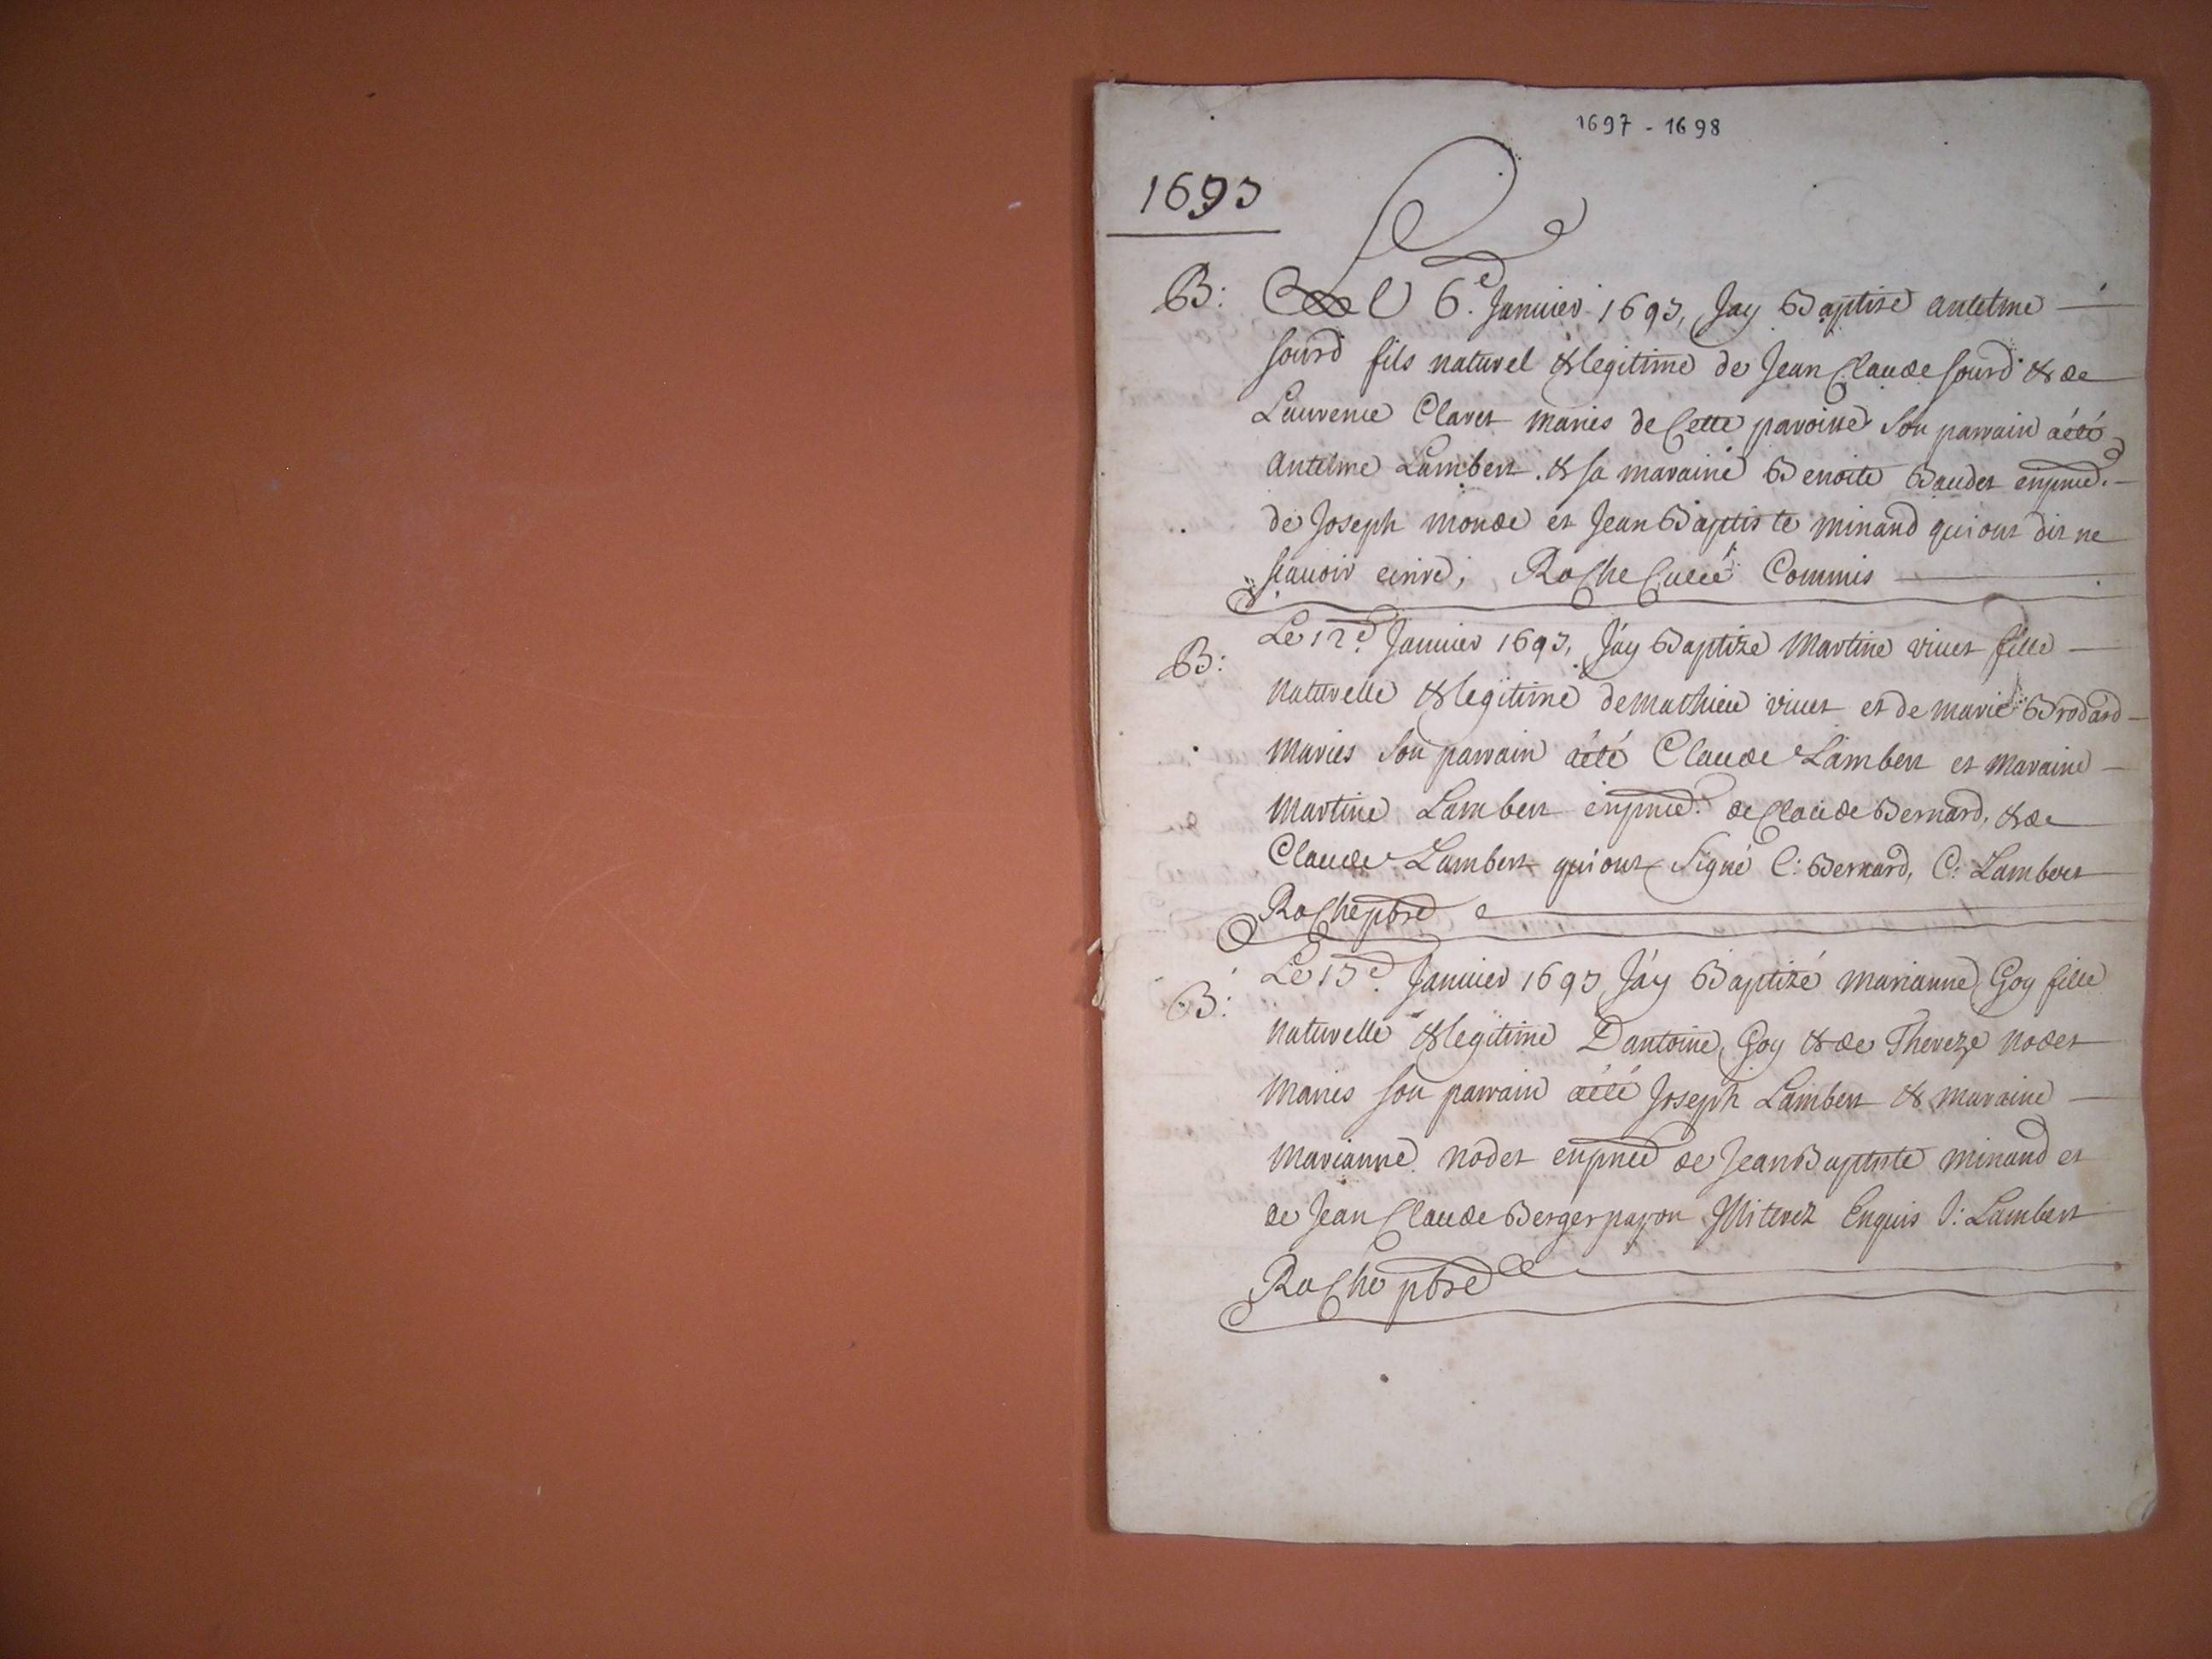 1697 - 1698
1693
B: Le 6e. Janvier 1693, Jay Baptisé antelme
sourd fils naturel & legitime de Jean Claude sourd & de
Laurence Claret mariés de Cette paroisse son parrain a été
antelme Lambert & sa maraine Benoite Baudet enpnce.
de Joseph monde et Jean Baptiste minand qui ont dit ne
scavoir ecrire, Roche Curé Commis
B: Le 12e. Janvier 1693, Jáy Baptizé Martine vivet fille
Naturelle & legitime de mathieu vivet et de marie Brodard
Maries son parrain a été Claude Lambert et Maraine
Martine Lambert enpnce. de Claude Bernard, & de
Claude Lambert qui ont Signé C: Bernard, C: Lambert
Roche pbre
B: Le 13e. Janvier 1693 Jáy Baptizé marianne Goy fille
Naturelle & legitime Dantoine Goy & de Thereze nodet
Maries son parrain a été Joseph Lambert & maraine
Marianne nodet enpnce de Jean Baptiste minand et
de Jean Claude Berger Enquis J: Lambert
Roche pbre